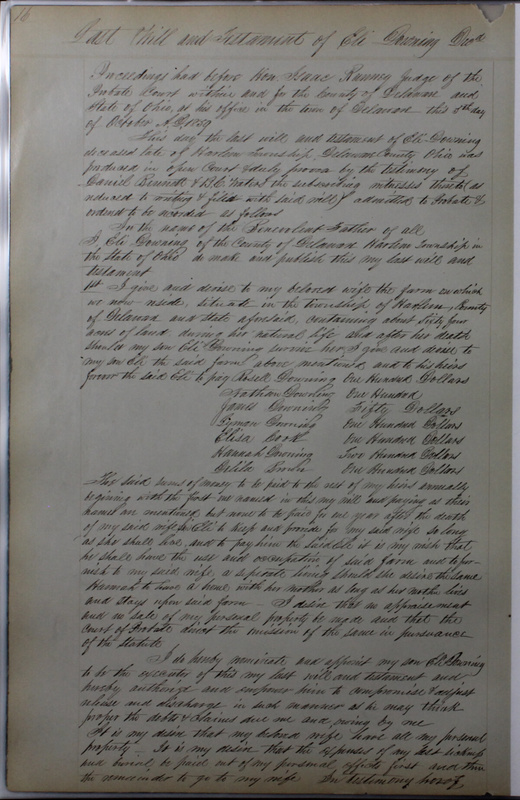 16
Last Will and Testament of Eli Downing Decd
Proceedings had before Hon Isaac Ranney Judge of the
Probate Court within and for the County of Delaware and
State of Ohio, at his office in the town of Delaware this 3rd day
of October A.D. 1859
This day the last will and testament of Eli Downing
deceased late of Harlem Township Delaware County Ohio was
produced in open Court & duly proven by the testimony of
Daniel Bennett & B.C. Waters the subscribing witnesses thereto (as
reduced to writing & filed with said will) admitted to Probate &
ordered to be recorded as follows
In the name of the Benevolent Father of all
I, Eli Downing of the County of Delaware Harlem Township in
the State of Ohio do make and publish this my last will and
testament
1st I give and devise to my beloved wife the farm on which
we now reside, situate in the township of Harlem, County
of Delaware and State aforesaid, containing about Sixty four
acres of land during her natural life and after her death
should my son Eli Downing survive her, I give and devise to
my son Eli the said farm above mentioned and to his heirs
forever the said Eli to pay Rosell Downing One Hundred Dollars
Nathan Downing One Hundred
James Downing Fifty Dollars
Tyman Downing One Hundred Dollars
Elisa Cook One Hundred Dollars
Hannah Downing Two Hundred Dollars
Delila One Hundred Dollars
The said sums of money to be paid to the rest of my heirs annually
begining with the first one named in this my will and paying as their
names are mentioned but none to be paid for one year after the death
of my said wife & Eli to keep and provide for my said wife so long
as she shall live, and to pay him the said Eli it is my wish that
he shall have the use and occupation of said farm and to fur-
nish to my said wife, a seperate living should she desire the same
Hannah to have a home with her mother as long as her mother lives
and stays upon said farm - I desire that no appraisement
and no sale of my personal property be made and that the
Court of Probate direct the omission of the same in pursuance
of the statute
I do hereby nominate and appoint my son Eli Downing
to be the executor of this my last will and testament and
hereby authorize and empower him to compromise & adjust
release and discharge in such manner as he may think
proper the debts & claims due me and owing by me
It is my desire that my beloved wife have all my personal
property - It is my desire that the expenses of my last sickness
and burial be paid out of my personal effects first and then
the remainder to go to my wife In testimony hereof